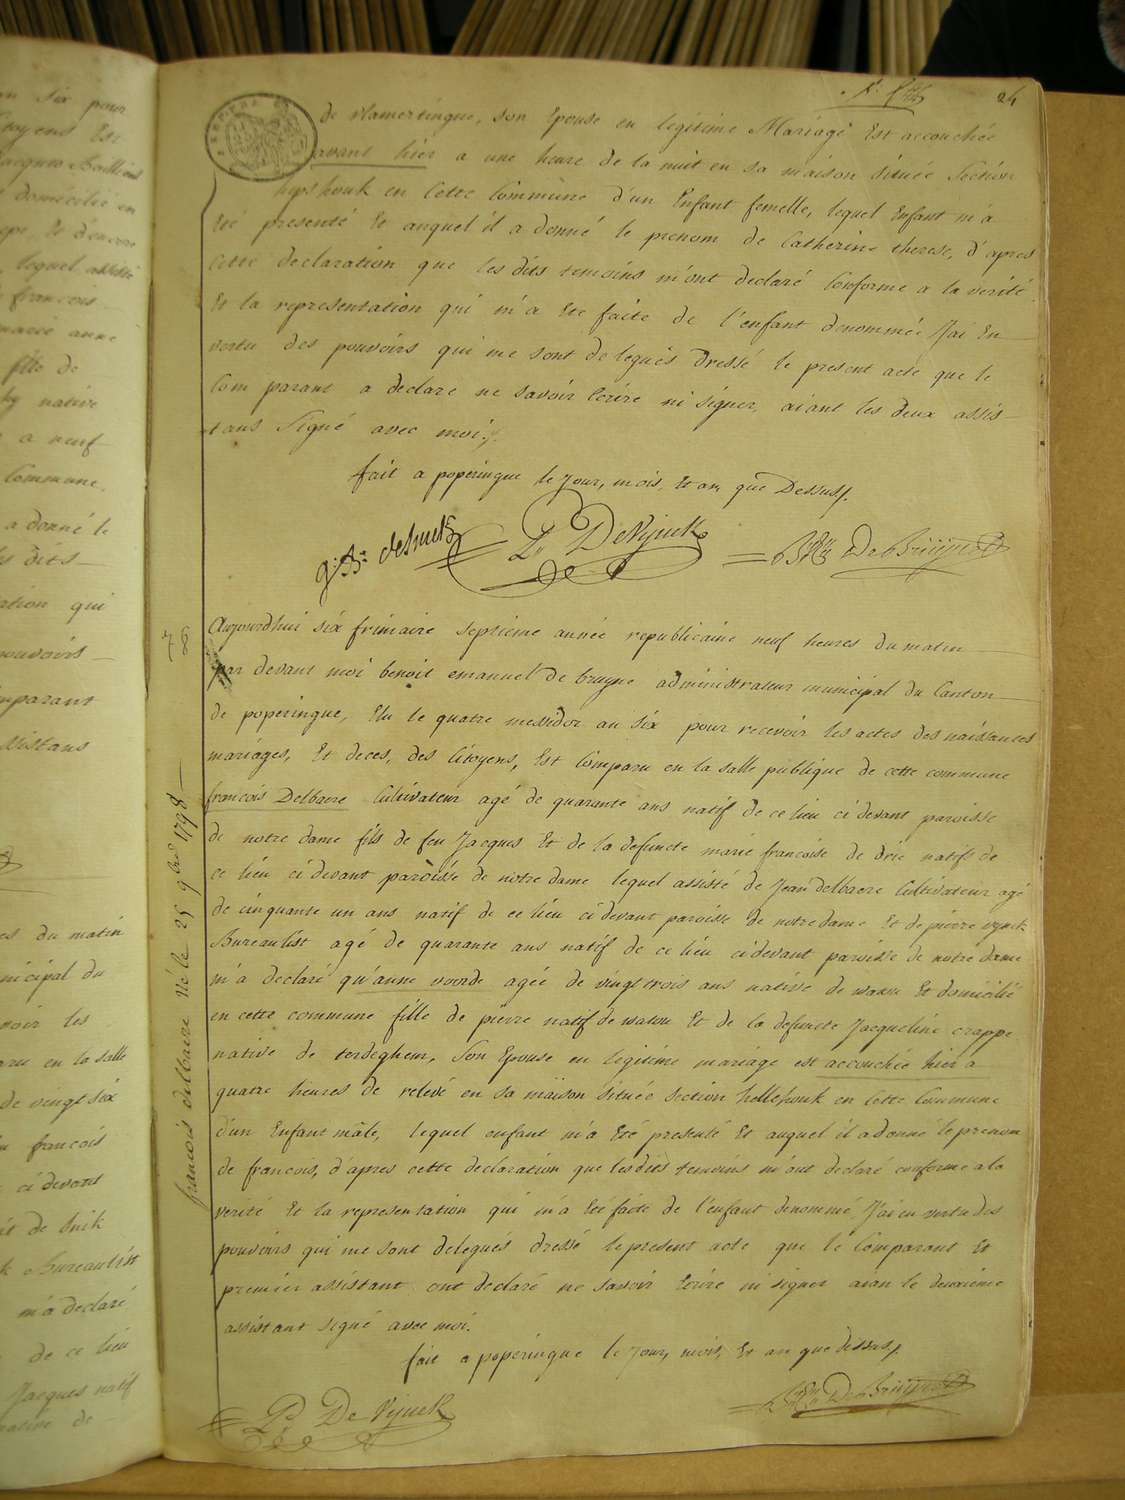 24
de vlamertingue, son Epouse en legitime Mariage Est accouchée
avant hier a une heure de la nuit en sa maison située Section
en Cette Commune d'un Enfant femelle, lequel Enfant m'a
Eté presenté Et auquel il a donné le prenom de Catherine therese, d'apres
Cette declaration que les dits temoins m'ont declaré Conforme a la verité
Et la representation qui m'a Eté faite de l'enfant denommée J'ai En
vertu des pouvoirs qui me sont delegués dressé le present acte que le
Comparant a declaré ne savoir Ecrire ni signer, aiant les deux assis-
tans Signé avec moi.
fait a poperingue le Jour, mois, Et an, que Dessus.
P. De Vijnck
DeBruijne
78
francois delbaere Né le 25 9bre 1798
Aujourdhui six frimaire septieme année republicaine neuf heures du matin
par devant moi benoit emanuel de bruyne administrateur municipal du Canton
de poperingue, Elu le quatre messidor an six pour recevoir les actes des naissances
mariages, Et deces, des Citoyens, Est Comparu en la salle publique de cette commune
francois Delbaere Cultivateur agé de quarante ans natif de ce lieu ci devant paroisse
de notre dame fils de feu Jacques Et de la defuncte marie francoise de drie natifs de
ce lieu ci devant paroisse de notre dame lequel assisté de Jean delbaere Cultivateur agé
de cinquante un ans natif de ce lieu ci devant paroisse de notre dame Et de pierre vynck
Bureaulist agé de quarante ans natif de ce lieu ci devant paroisse de notre dame
m'a declaré qu'anne voorde agée de vingt trois ans native de watou Et domicilié
en cette commune fille de pierre natif de watou Et de la defuncte Jacqueline crappe
native de terdeghem, Son Epouse en legitime mariage est accouchée hier a
quatre heures de relevé en sa maison située section hellehouk en cette Commune
d'un Enfant mâle, lequel enfant m'a Eté presenté Et auquel il a donné le prenom
de francois, d'apres cette declaration que les dits temoins m'ont declaré conforme a la
verité Et la representation qui m'a Eté faite de l'enfant denommé J'ai en vertu des
pouvoirs qui me sont delegués dressé le present acte que le Comparant Et
premier assistant ont declaré ne savoir Ecrire ni signer aian le deuxieme
assistant signé avec moi.
fait a poperingue le Jour, mois, Et an que dessus.
P. De Vijnck
DeBruijne